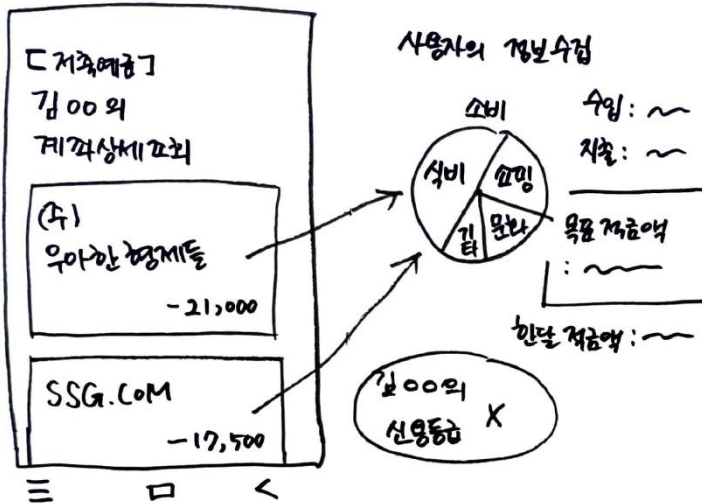 [저축예금]
김00의
계좌상세조회
(주)
우아한형제들
-21,000
SSG.COM
-17,500
사용자의 정보수집
소비
식비
쇼핑
기타
문화
수입:
지출:
목표 적금액
:
한달 적금액:
김00의
신용등급 X